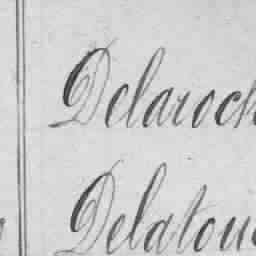 Delaroch
Delatou